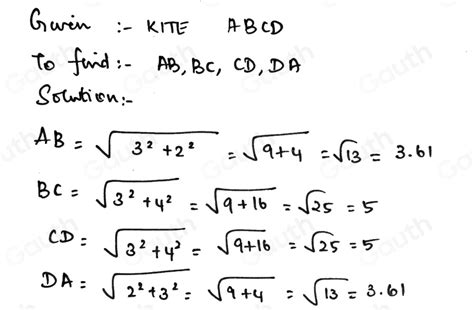 Given :- KITE ABCD
To find :- AB, BC, CD, DA
Solution:-
AB = √3² + 2² = √9+4 = √13 = 3.61
BC = √3² + 4² = √9+16 = √25 = 5
CD = √3² + 4² = √9+16 = √25 = 5
DA = √2² + 3² = √9+4 = √13 = 3.61